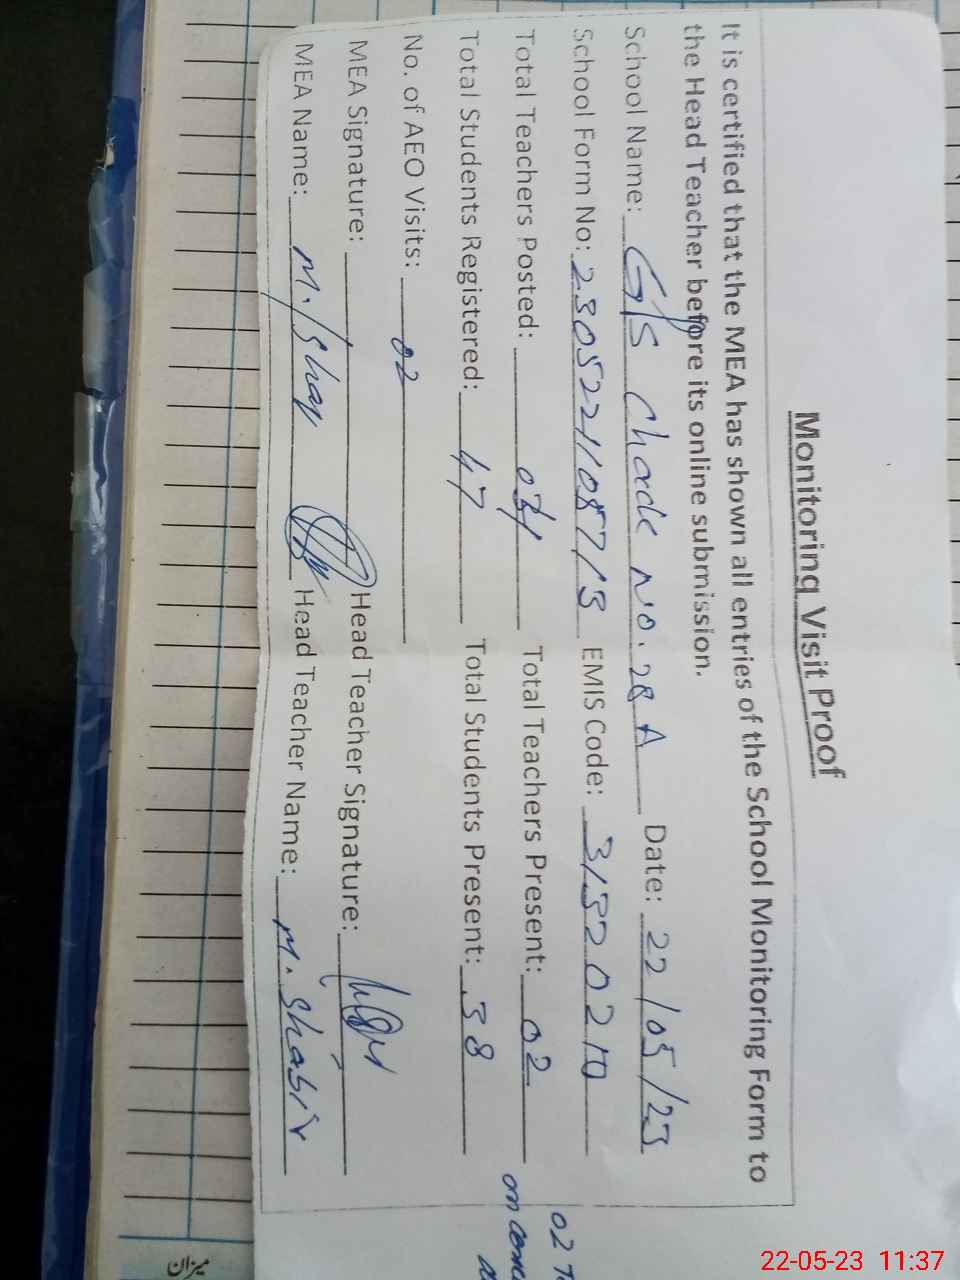 Monitoring Visit Proof
It is certified that the MEA has shown all entries of the School Monitoring Form to
the Head Teacher before its online submission.
School Name: G/S Chack No. 28 A Date: 22/05/23
School Form No: EMIS Code: 31320210
Total Teachers Posted: Total Teachers Present: 02
Total Students Registered: 47 Total Students Present: 38
No. of AEO Visits: 02
MEA Signature: Head Teacher Signature:
MEA Name: Head Teacher Name: M. Shabir
02
on
میزان
22-05-23 11:37